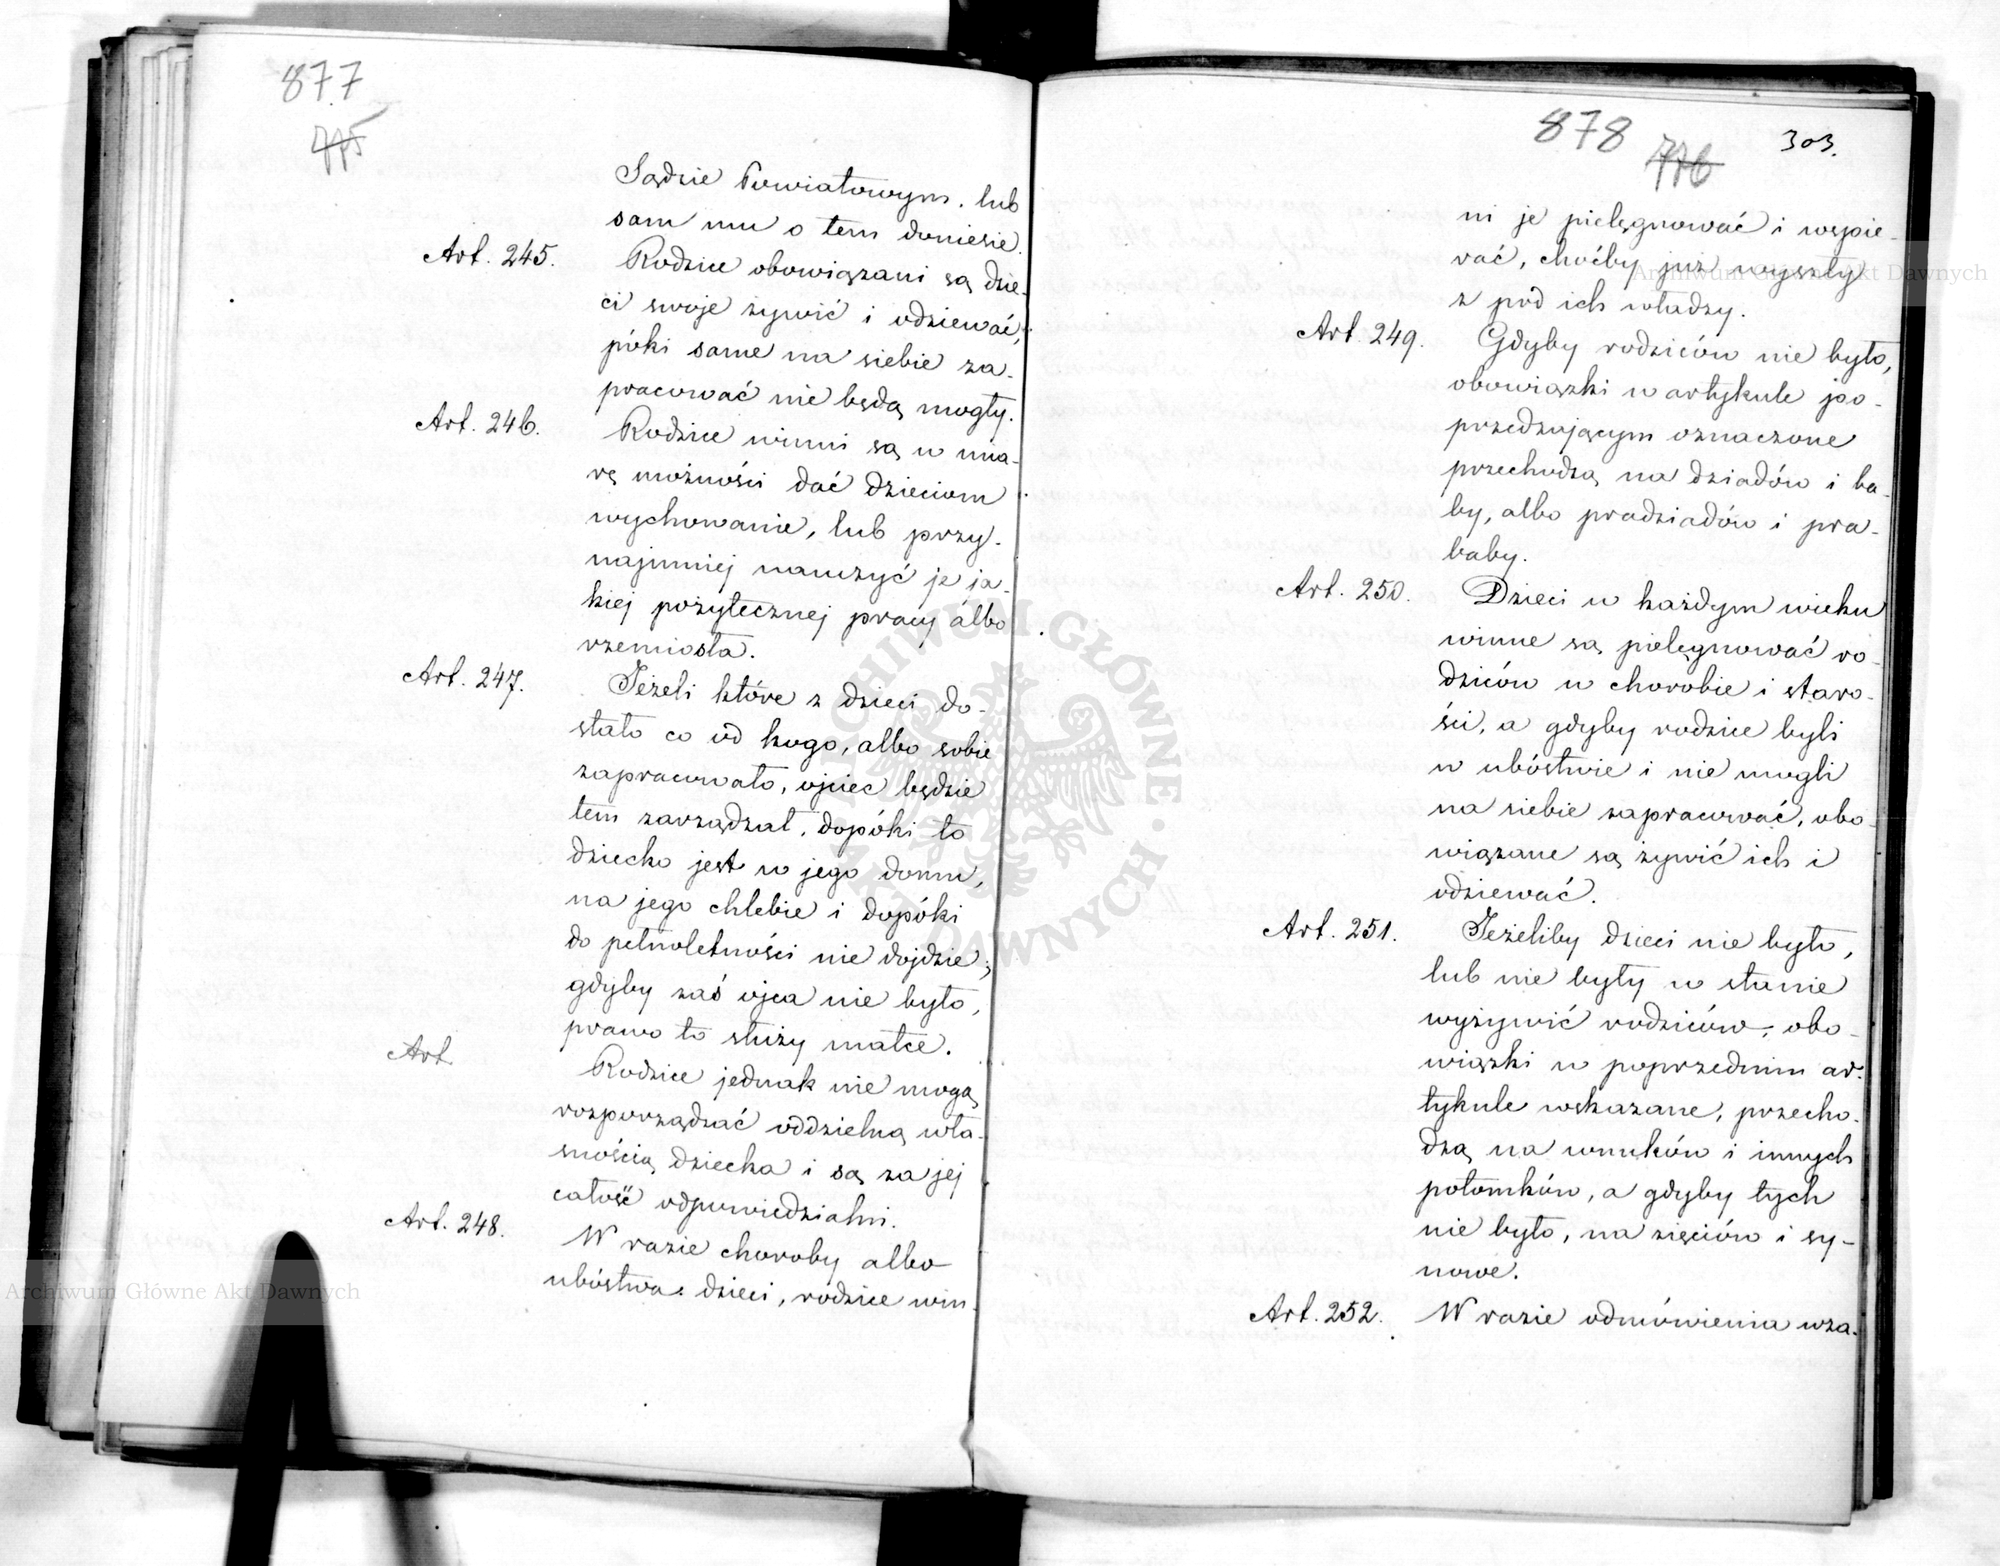 877
775
Sądzie Powiatowym, lub
sam mu o tem doniesie.
Art. 245. Rodzice obowiązani są dzie-
ci swoje żywić i odziewać,
póki same na siebie za-
pracować nie będą mogły.
Art. 246. Rodzice winni są w mia-
rę możności dać dzieciom
wychowanie, lub przy-
najmniej nauczyć je ja-
kiej pożytecznej pracy albo
rzemiosła.
Art. 247. Jeżeli które z dzieci do-
stało co od kogo, albo sobie
zapracowało, ojciec będzie
tem zarządzał, dopóki to
dziecko jest w jego domu,
na jego chlebie i dopóki
do pełnoletności nie dojdzie;
gdyby zaś ojca nie było,
prawo to służy matce.
Art.
Rodzice jednak nie mogą
rozporządzać oddzielną wła-
snością dziecka i są za jej
całość odpowiedzialni.
Art. 248. W razie choroby albo
ubóstwa dzieci, rodzice win-
878 776 303.
ni je pielęgnować i wspie-
rać, choćby już wyszły
z pod ich władzy.
Art. 249. Gdyby rodziców nie było,
obowiązki w artykule po-
przedzającym oznaczone
przechodzą na dziadów i ba-
by, albo pradziadów i pra-
baby.
Art. 250. Dzieci w każdym wieku
winne są pielęgnować ro-
dziców w chorobie i staro-
ści, a gdyby rodzice byli
w ubóstwie i nie mogli
na siebie zapracować, obo-
wiązane są żywić ich i
odziewać.
Art. 251. Jeżeliby dzieci nie było,
lub nie były w stanie
wyżywić rodziców, obo-
wiązki w poprzednim ar-
tykule wskazane, przecho-
dzą na wnuków i innych
potomków, a gdyby tych
nie było, na zięciów i sy-
nowe.
Art. 252. W razie odmówienia wza-
Archiwum Główne Akt Dawnych
Archiwum Główne Akt Dawnych
ARCHIWUM GŁÓWNE AKT DAWNYCH